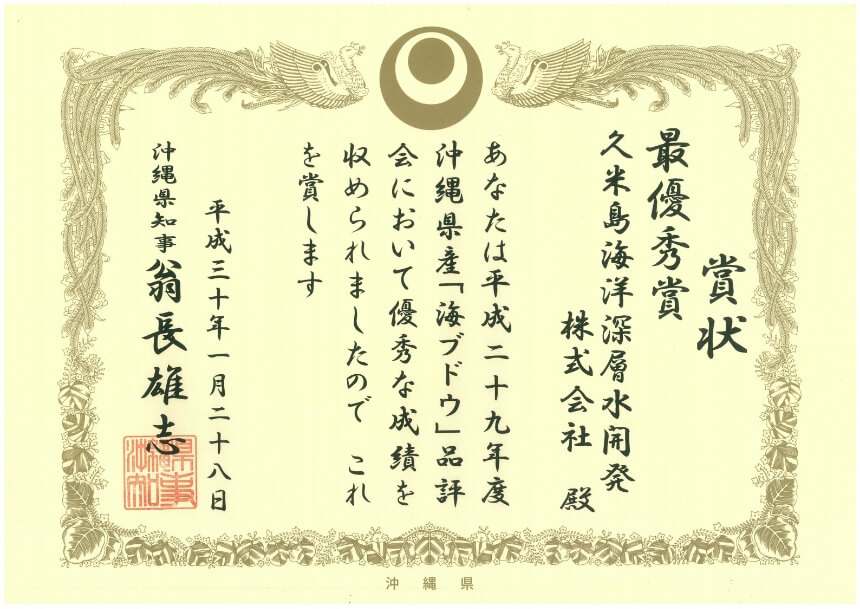 賞状
最優秀賞
久米島海洋深層水開発
株式会社 殿
あなたは平成二十九年度
沖縄県産「海ブドウ」品評
会において優秀な成績を
収められましたので これ
を賞します
平成三十年一月二十八日
沖縄県知事 翁長雄志
沖縄県知事
沖縄県